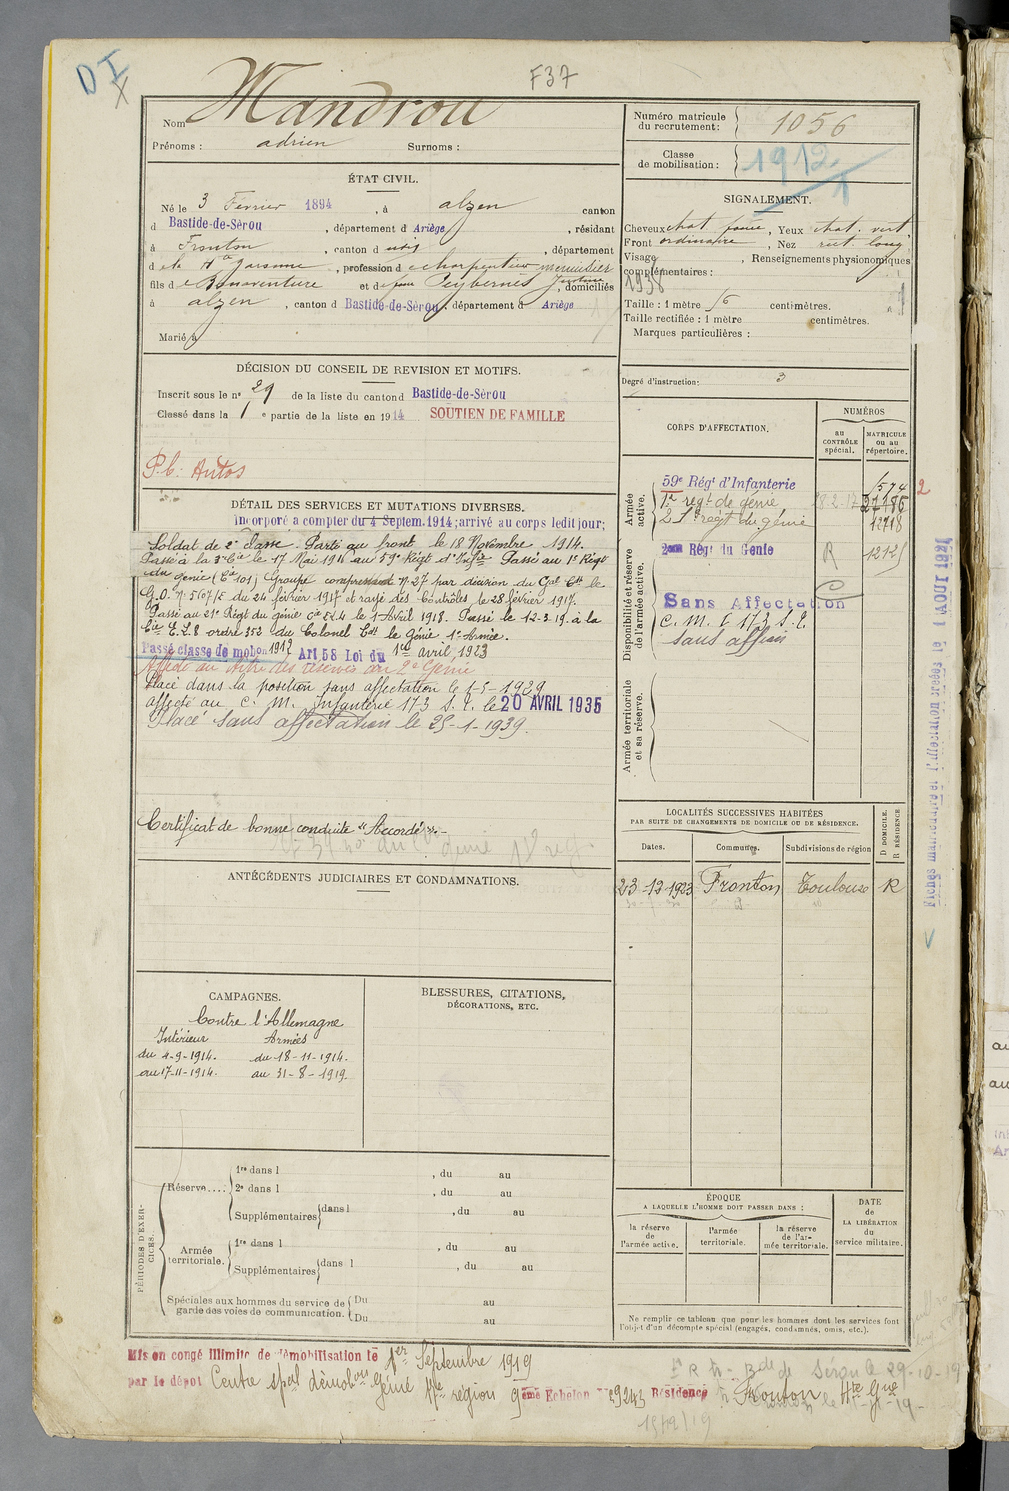 D I
X
F37
Nom Mandrou
Prénoms : adrien Surnoms :
ÉTAT CIVIL.
Né le 3 Février 1894, à alzen canton
d Bastide-de-Sèrou, département d Ariège, résidant
à Fronton, canton d udit, département
d e la Hte Garonne, profession d e charpentier menuisier
fils d e Bonaventure et d e feue Peybernès Justine, domiciliés
à alzen, canton d Bastide-de-Sèrou, département d Ariège
Marié à
DÉCISION DU CONSEIL DE REVISION ET MOTIFS.
Inscrit sous le n° 29 de la liste du canton d Bastide-de-Sèrou
Classé dans la 1e partie de la liste en 1914 SOUTIEN DE FAMILLE
P.b. Autos
DÉTAIL DES SERVICES ET MUTATIONS DIVERSES.
Incorporé a compter du 4 Septem. 1914; arrivé au corps ledit jour;
Soldat de 2e classe. Parti au front le 18 Novembre 1914.
Passé à la 3e Cie le 17 Mai 1916 au 59e Régt d'Infie Passé au 1er Régt
du génie (Cie 101) Groupe compressed N° 27 par décision du Gal Ct le
G.O. n° 5107/E du 24 février 1917 et rayé des Contrôles le 28 février 1917.
Passé au 21e Régt du génie Cie 52.4 le 1er Avril 1918. Passé le 12-3-19 à la
Cie E.L.8 ordre 352 du Colonel Ct le Génie 1e Armée.
Passé classe de mobon 1912 Art 58 Loi du 1er avril 1923
Affecté au titre des réserves au 2e Génie
Placé dans la position sans affectation le 1-5-1929
affecté au C. M. Infanterie 173 S. P. le 20 AVRIL 1935
Placé sans affectation le 25-1-1939.
Certificat de bonne conduite "Accordé".
ANTÉCÉDENTS JUDICIAIRES ET CONDAMNATIONS.
CAMPAGNES.
Contre l'Allemagne
Intérieur Armées
du 4-9-1914. du 18-11-1914.
au 17-11-1914. au 31-8-1919.
BLESSURES, CITATIONS,
DÉCORATIONS, ETC.
PÉRIODES D'EXERCICES.
Réserve....
1re dans l , du au
2e dans l , du au
Supplémentaires dans l , du au
Armée territoriale.
1re dans l , du au
Supplémentaires dans l , du au
Spéciales aux hommes du service de garde des voies de communication.
Du au
Du au
Mis en congé illimité de démobilisation le 1er Septembre 1919
par le dépôt Centre spal démobon génie 17e région 9ème Echelon N° 9243 Résidence Fronton Hte Gne
Numéro matricule
du recrutement : 1056
Classe
de mobilisation : 1912
SIGNALEMENT.
Cheveux chat. foncé, Yeux chat. vert
Front ordinaire, Nez rect. long
Visage , Renseignements physionomiques
complémentaires :
1938
Taille : 1 mètre 56 centimètres.
Taille rectifiée : 1 mètre centimètres.
Marques particulières :
Degré d'instruction : 3
CORPS D'AFFECTATION.
NUMÉROS
au CONTRÔLE spécial.
MATRICULE ou au répertoire.
Armée active.
59e Régt d'Infanterie 574
1er régt de génie 27186
21e régt du génie 12718
2
Disponibilité et réserve de l'armée active.
2ème Régt du Génie R
Sans Affectation
C. M. I 173 S. P.
Sans affon
Armée territoriale et sa réserve.
LOCALITÉS SUCCESSIVES HABITÉES
PAR SUITE DE CHANGEMENTS DE DOMICILE OU DE RÉSIDENCE.
D DOMICILE.
R RÉSIDENCE
Dates. Communes. Subdivisions de région
23-12-1923 Fronton Toulouse R
ÉPOQUE
A LAQUELLE L'HOMME DOIT PASSER DANS :
la réserve de l'armée active.
l'armée territoriale.
la réserve de l'armée territoriale.
DATE de LA LIBÉRATION du service militaire.
Ne remplir ce tableau que pour les hommes dont les services font
l'objet d'un décompte spécial (engagés, condamnés, omis, etc.).